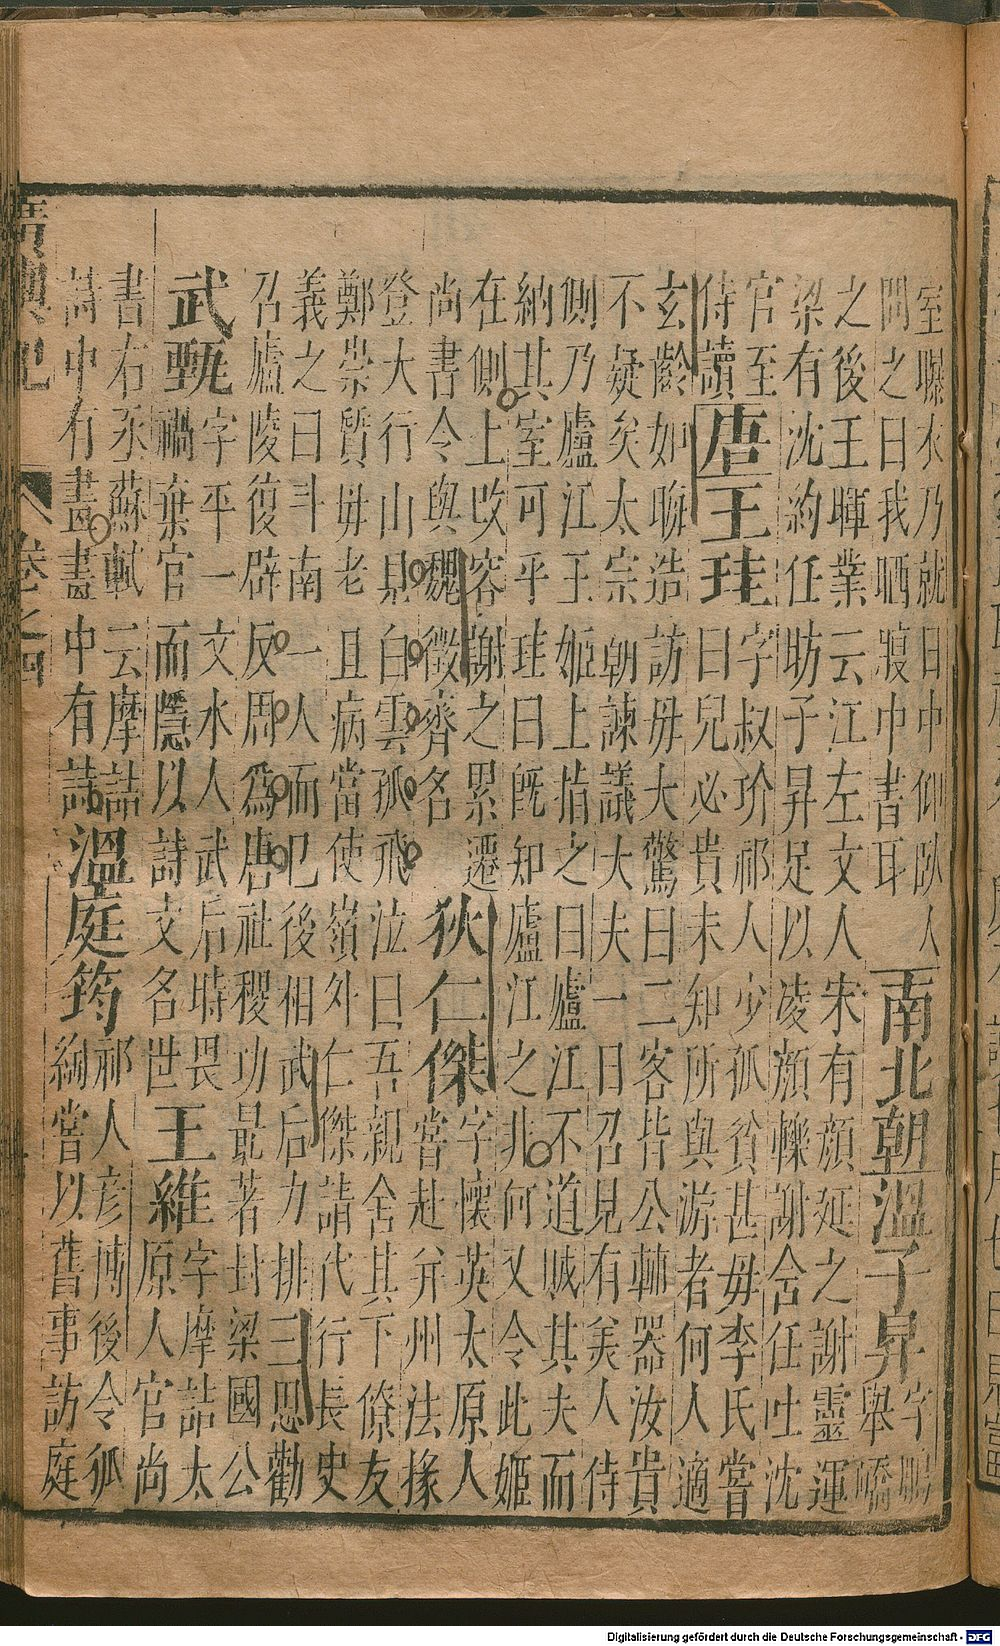 室曝衣乃就日中仰臥人
問之曰我晒腹中書耳
南北朝溫子昇
字鵬
舉嶠
之後王暉業云江左文人宋有顔延之謝靈運
梁有沈約任昉子昇足以凌顔轢謝含任吐沈
官至
侍讀
唐王珪
字叔玠祁人少孤貧甚毋李氏嘗
曰兒必貴未知所與游者何人適
玄齡如晦造訪毋大驚曰二客皆公輔器汝貴
不疑矣太宗朝諫議大夫一日召見有美人侍
側乃廬江王姬上指之曰廬江不道賊其夫而
納其室可乎珪曰旣知廬江之非何又令此姬
在側上改容謝之累遷
尚書令與魏徵齊名
狄仁傑
字懷英太原人
嘗赴并州法掾
登大行山見白雲孤飛泣曰吾親舍其下僚友
鄭崇質毋老且病當使嶺外仁傑請代行長史
義之曰斗南一人而已後相武后力排三思勸
召廬陵復辟反周爲唐社稷功最著封梁國公
武甄
字平一文水人武后時畏
禍棄官而隱以詩文名世
王維
字摩詰太
原人官尚
書右丞蘇軾云摩詰
詩中有畫畫中有詩
溫庭筠
祁人彦博後令狐
綯嘗以舊事訪庭
廣輿記 卷之四
Digitalisierung gefördert durch die Deutsche Forschungsgemeinschaft - DFG